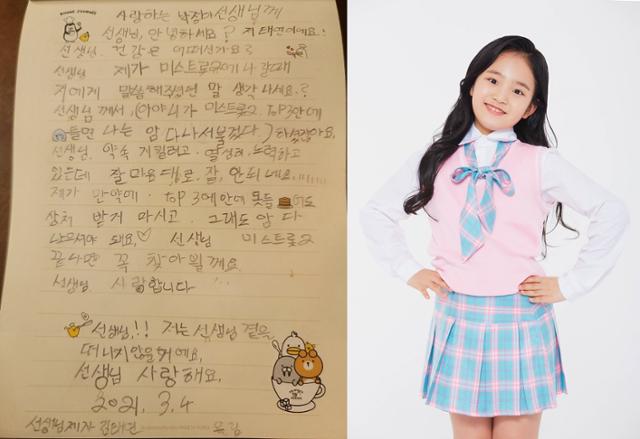 사랑하는 박정아 선생님께
선생님, 안녕하세요? 저 태연이예요!
선생님. 건강은 어떠신가요?
선생님 제가 미스트롯2에 나갈때
저에게 말씀해주셨던 말 생각 나세요?
선생님 께서, (아야! 니가 미스트롯2. TOP3안에
들면 나는 암 다 나서불겄다) 하셨잖아요.
선생님. 약속 지킬려고. 열심히. 노력하고
있는데 잘 마음대로. 잘, 안되네요......
제가 만약에. TOP 3에 안에 못들 더도
상처 받지 마시고. 그래도 암 다
나으셔야 돼요,♡ 선생님 미스트롯2
끝나면 꼭 찾아 뵐께요.
선생님 사랑합니다 ...
선생님!! 저는 선생님 곁을
떠나지 않을 거예요,
선생님 사랑해요,
2021. 3. 4
선생님 제자 김태연 올림